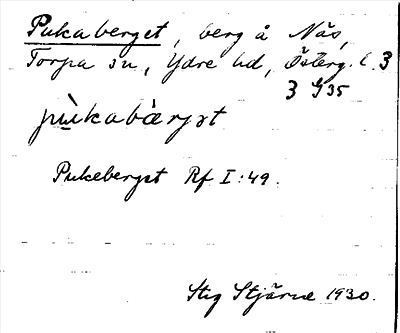 Pukaberget, berg å Näs,
Torpa sn, Ydre hd, Österg. l. 3
3 G35
pùkabàrjət
Pukeberget Rf I:49.
Stig Stjärne 1930.